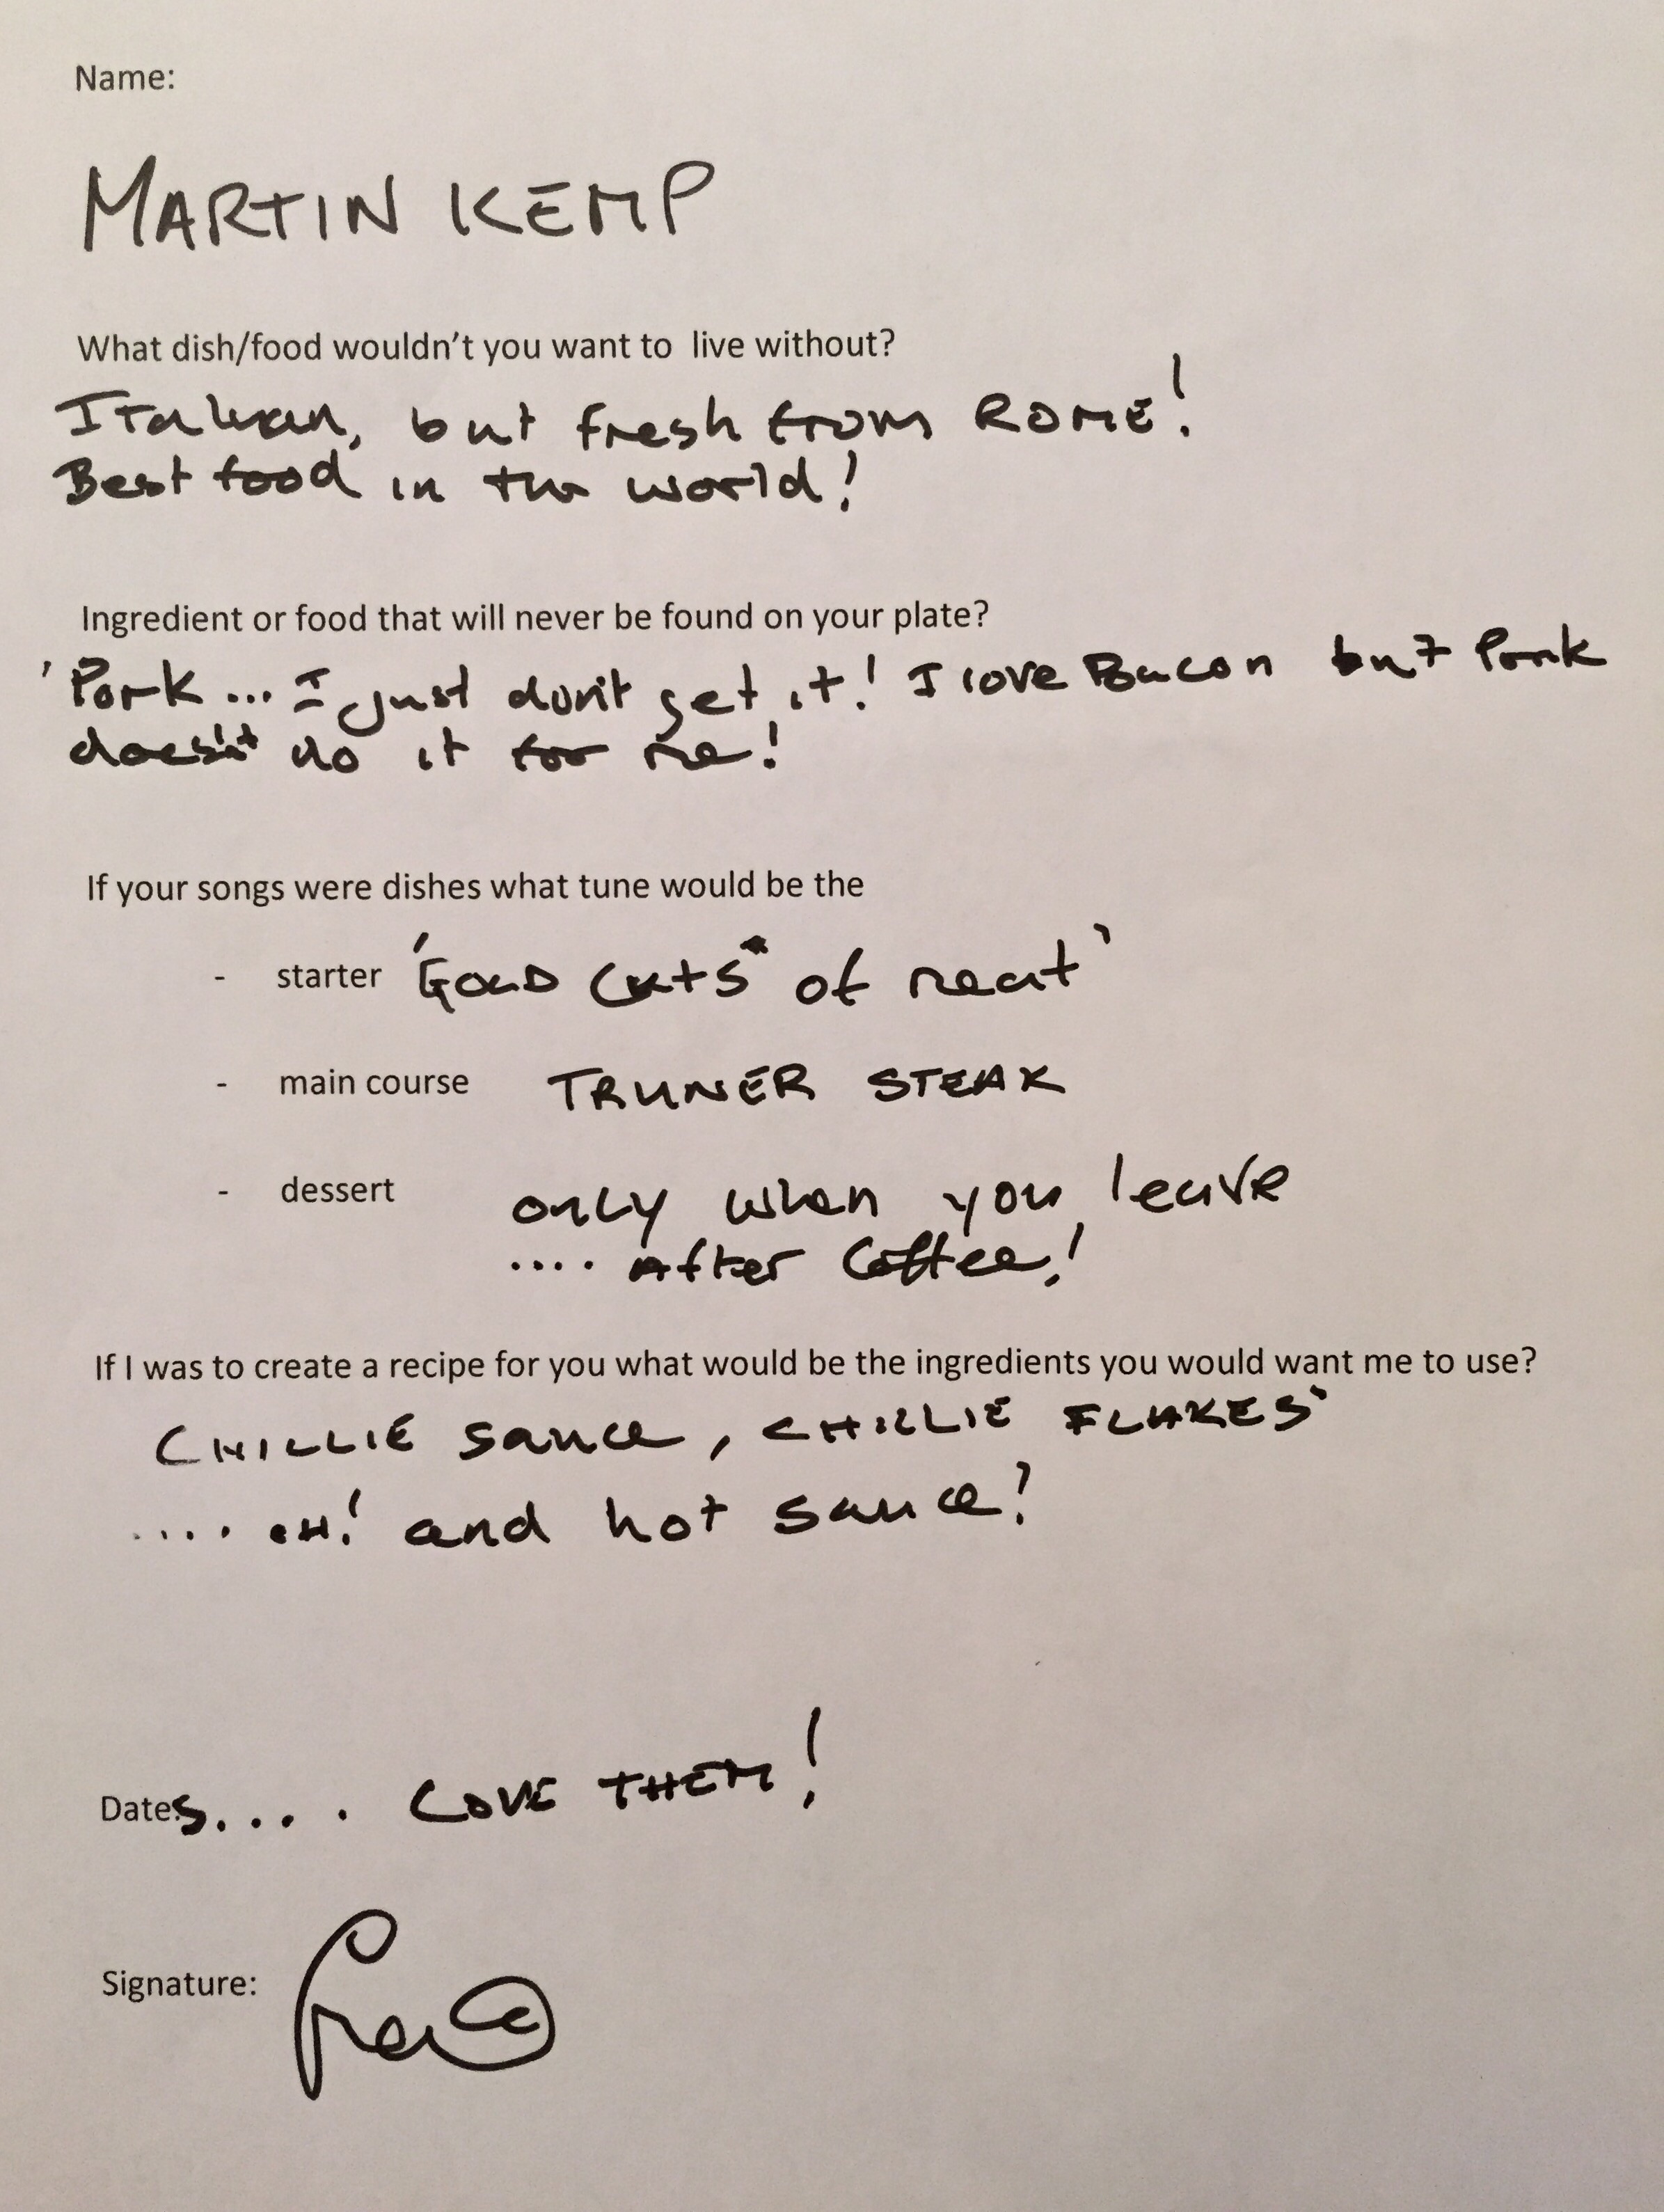 Name:
MARTIN KEMP
What dish/food wouldn't you want to live without?
Italian, but fresh from ROME!
Best food in the world!
Ingredient or food that will never be found on your plate?
'Pork... I just don't get it! I love Bacon but Pork
doesn't do it for me!
If your songs were dishes what tune would be the
- starter 'GOLD cuts" of meat'
- main course TRUNER STEAK
- dessert only when you leave
.... After Coffee!
If I was to create a recipe for you what would be the ingredients you would want me to use?
CHILLIE sauce, CHILLIE FLAKES
.... OH! and hot sauce!
Dates.... LOVE THEM!
Signature: